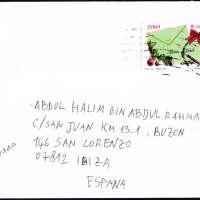 - ABDUL HALIM BIN ABDUL RAHMA
C/SAN JUAN KM 13.1, BUZON
146 SAN LORENZO
07812 IBIZA
ESPANA